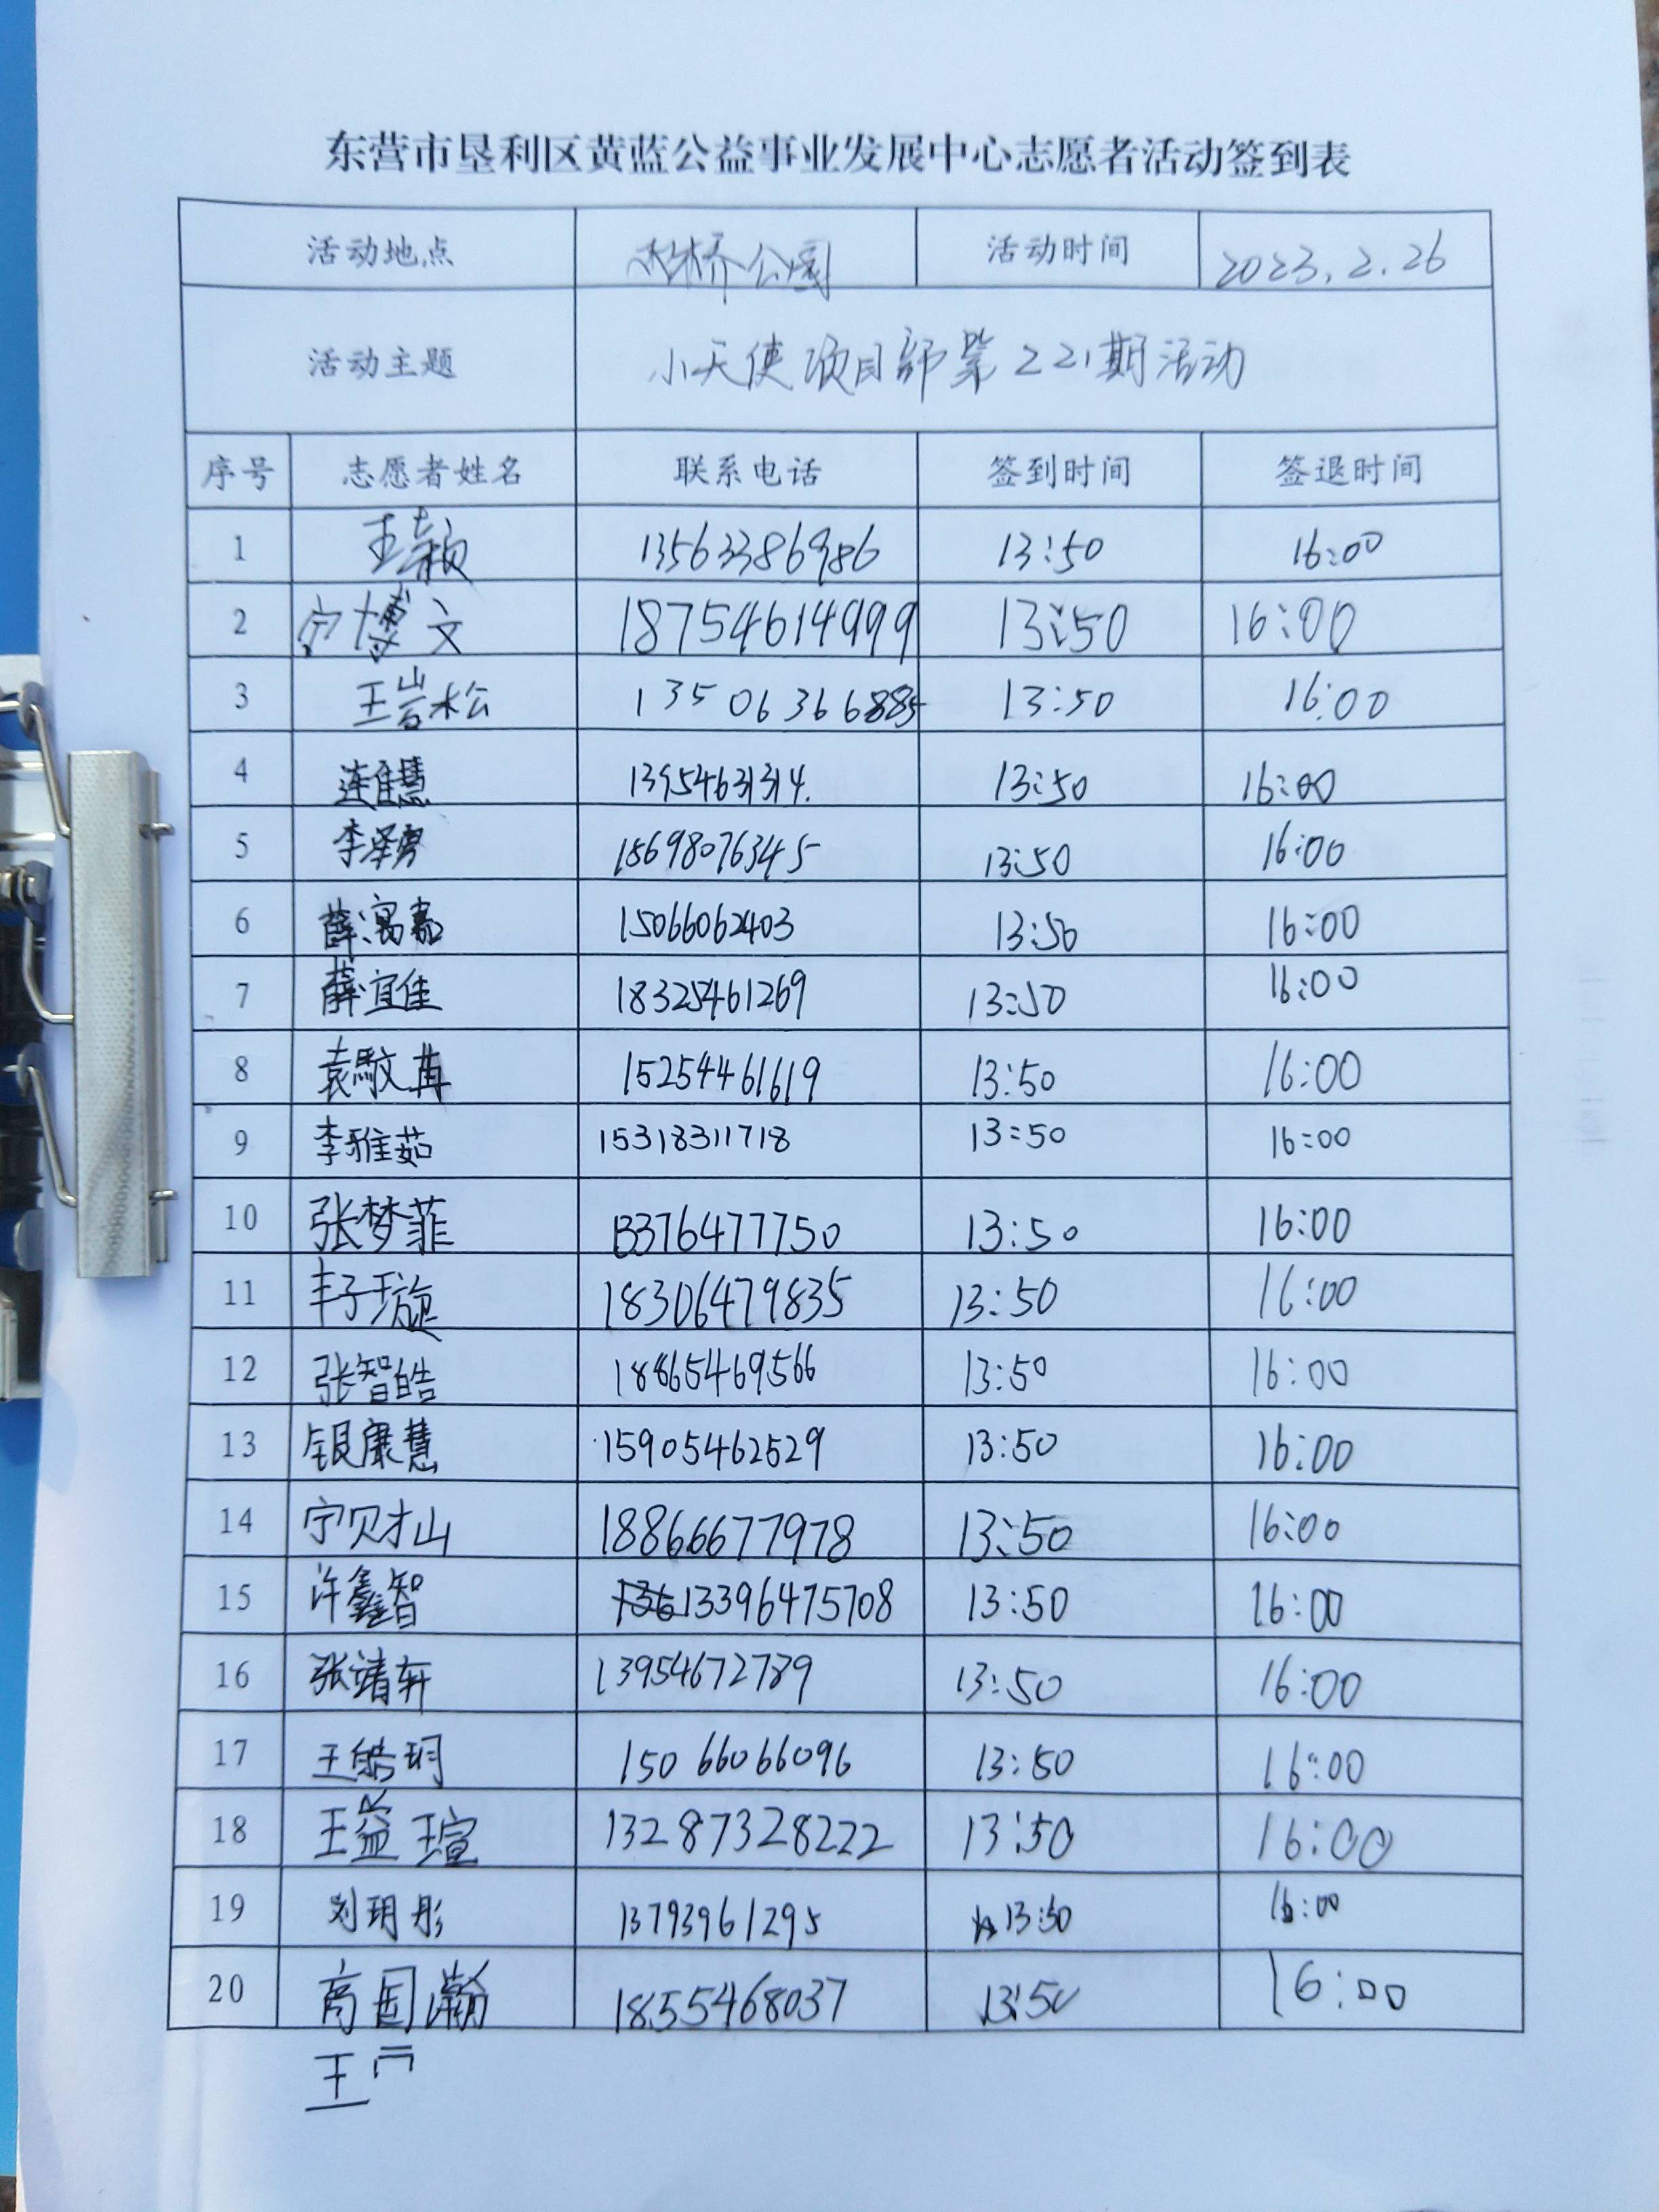 东营市垦利区黄蓝公益事业发展中心志愿者活动签到表
活动地点 桥公园 活动时间 2023.2.26
活动主题 小天使项目部第221期活动
序号 志愿者姓名 联系电话 签到时间 签退时间
1 王颖 13563386986 13:50 16:00
2 宁博文 18754614999 13:50 16:00
3 王岩松 13506366885 13:50 16:00
4 连佳慧 13954631314. 13:50 16:00
5 李泽 18698076345 13:50 16:00
6 薛寓嘉 15066062403 13:50 16:00
7 薛宜佳 18325461269 13:50 16:00
8 袁馭苒 15254461619 13:50 16:00
9 李雅茹 15318311718 13:50 16:00
10 张梦菲 13376477750 13:50 16:00
11 丰子璇 18306479835 13:50 16:00
12 张智皓 18865469566 13:50 16:00
13 银康慧 15905462529 13:50 16:00
14 宁财山 18866677978 13:50 16:00
15 许鑫智 13396475708 13:50 16:00
16 张靖轩 13954672789 13:50 16:00
17 王皓玥 15066066096 13:50 16:00
18 王益瑄 13287328222 13:50 16:00
19 刘玥彤 13793961295 13:50 16:00
20 商国瀚 18555468037 13:50 16:00
王